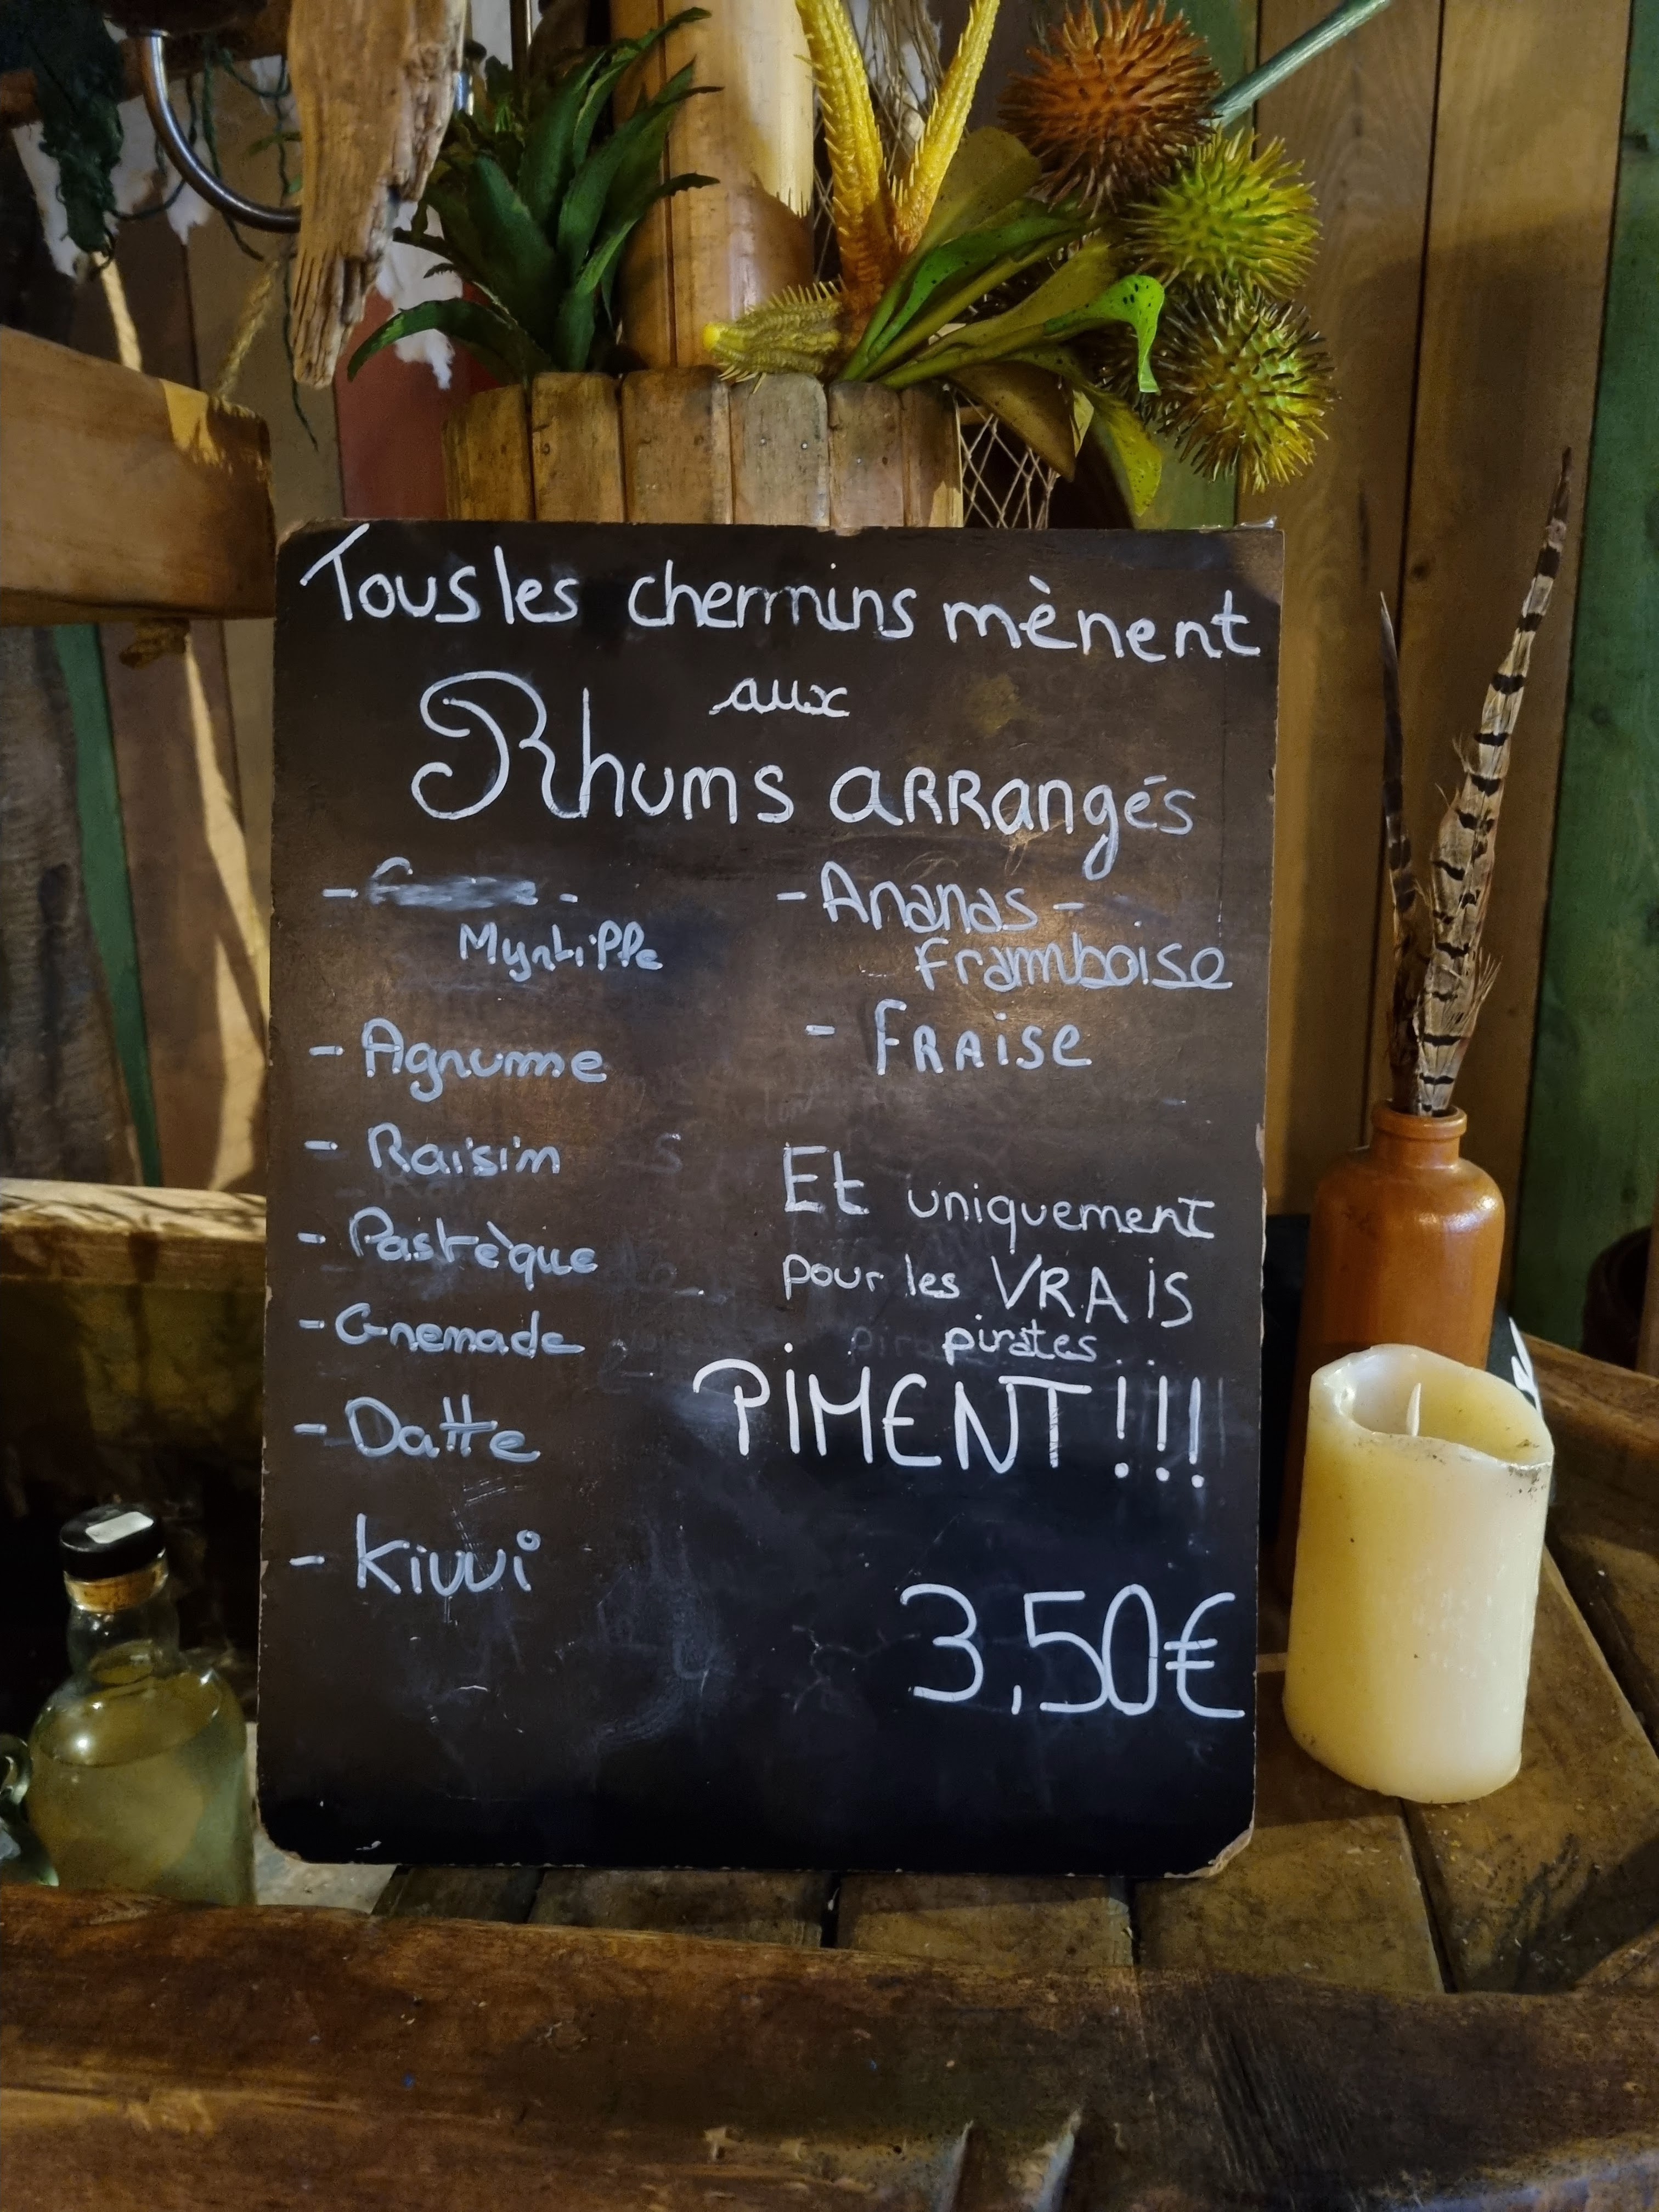 Tous les chemins mènent
aux
Rhums arrangés
- -
Myrtille
- Agrume
- Raisin
- Pastèque
- Grenade
- Datte
- Kiwi
- Ananas -
framboise
- FRAise
Et uniquement
pour les VRAIS
pirates
PIMENT !!!
3,50€